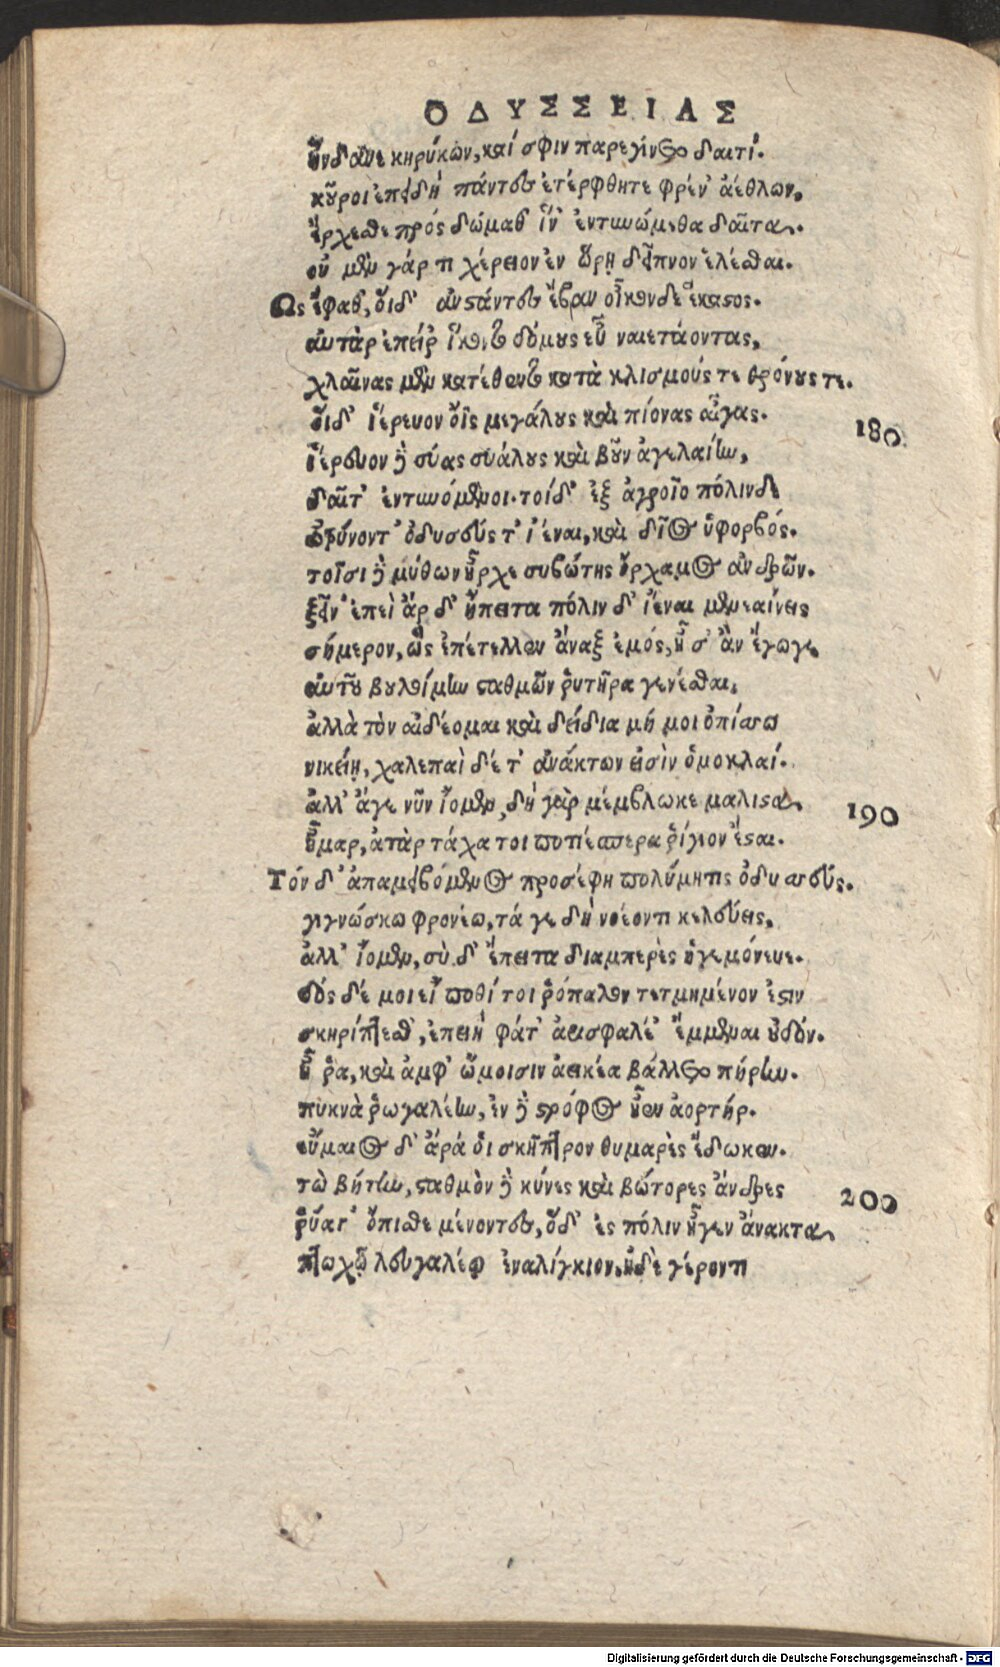 ΟΔΥΣΣΕΙΑΣ
ἥνδανε κηρύκων, καί σφιν παρεγίνετο δαιτί.
κοῦροι ἐπειδὴ πάντες ἐτέρφθητε φρέν' ἀέθλων,
ἔρχεσθε πρός δώμαθ' ἵν' ἐντυνώμεθα δαῖτα.
οὐ μὲν γάρ τι χέρειον ἐν ὥρῃ δεῖπνον ἑλέσθαι.
Ως ἔφαθ', οἵδ' ἀνστάντες ἔβαν οἶκονδε ἕκαστος.
αὐτὰρ ἐπεί ῥ' ἵκοντο δόμους εὖ ναιετάοντας,
χλαίνας μὲν κατέθεντο κατὰ κλισμούς τε θρόνους τε.
οἵδ' ἱέρευον ὄϊς μεγάλους καὶ πίονας αἶγας.
ἱέρευον δὲ σύας σιάλους καὶ βοῦν ἀγελαίην,
δαῖτ' ἐντυνόμενοι. τοίδ' ἐξ ἀγροῖο πόλινδε
180
ὠτρύνοντ' ὀδυσεύς τ' ἰέναι, καὶ δῖος ὑφορβός.
τοῖσι δὲ μύθων ἦρχε συβώτης ὄρχαμος ἀνδρῶν.
ξεῖν' ἐπεὶ ἄρ δ' ἤπειτα πόλιν δ' ἰέναι μενεαίνεις
σήμερον, ὣς ἐπέτελλεν ἄναξ ἐμός, ἦ σ' ἂν ἔγωγε
αὐτοῦ βουλοίμην σταθμῶν ῥυτῆρα γενέσθαι,
ἀλλὰ τὸν αἰδέομαι καὶ δείδια μή μοι ὀπίσσω
νικείῃ, χαλεπαὶ δέ τ' ἀνάκτων εἰσὶν ὁμοκλαί.
ἀλλ' ἄγε νῦν ἴομεν, δὴ γὰρ μέμβλωκε μάλιστα
190
ἦμαρ, ἀτὰρ τάχα τοι ποτὶ ἕσπερα ῥίγιον ἔσται.
Τόν δ' ἀπαμειβόμενος προσέφη πολύμητις ὀδυσσεύς.
γιγνώσκω φρονέω, τά γε δὴ νοέοντι κελεύεις,
ἀλλ' ἴομεν, σὺ δ' ἔπειτα διαμπερὲς ἡγεμόνευε.
δὸς δέ μοι εἴ ποθί τοι ῥόπαλον τετμημένον ἐστὶν
σκηρίπτεσθ', ἐπειὴ φάτ' ἀρισφαλέ' ἔμμεναι οὐδόν.
ἦ ῥα, καὶ ἀμφ' ὤμοισιν ἀεικέα βάλλετο πήρην.
πυκνὰ ῥωγαλέην, ἐν δὲ στρόφος ἦεν ἀορτήρ.
εὔμαιος δ' ἄρά οἱ σκῆπτρον θυμαρὲς ἔδωκεν.
τὼ βήτην, σταθμὸν δὲ κύνες καὶ βώτορες ἄνδρες
200
ῥύατ' ὄπισθε μένοντες, ὅδ' ἐς πόλιν ἦγεν ἄνακτα
πτωχῷ λευγαλέῳ ἐναλίγκιον, ἠδὲ γέροντι
Digitalisierung gefördert durch die Deutsche Forschungsgemeinschaft - DFG